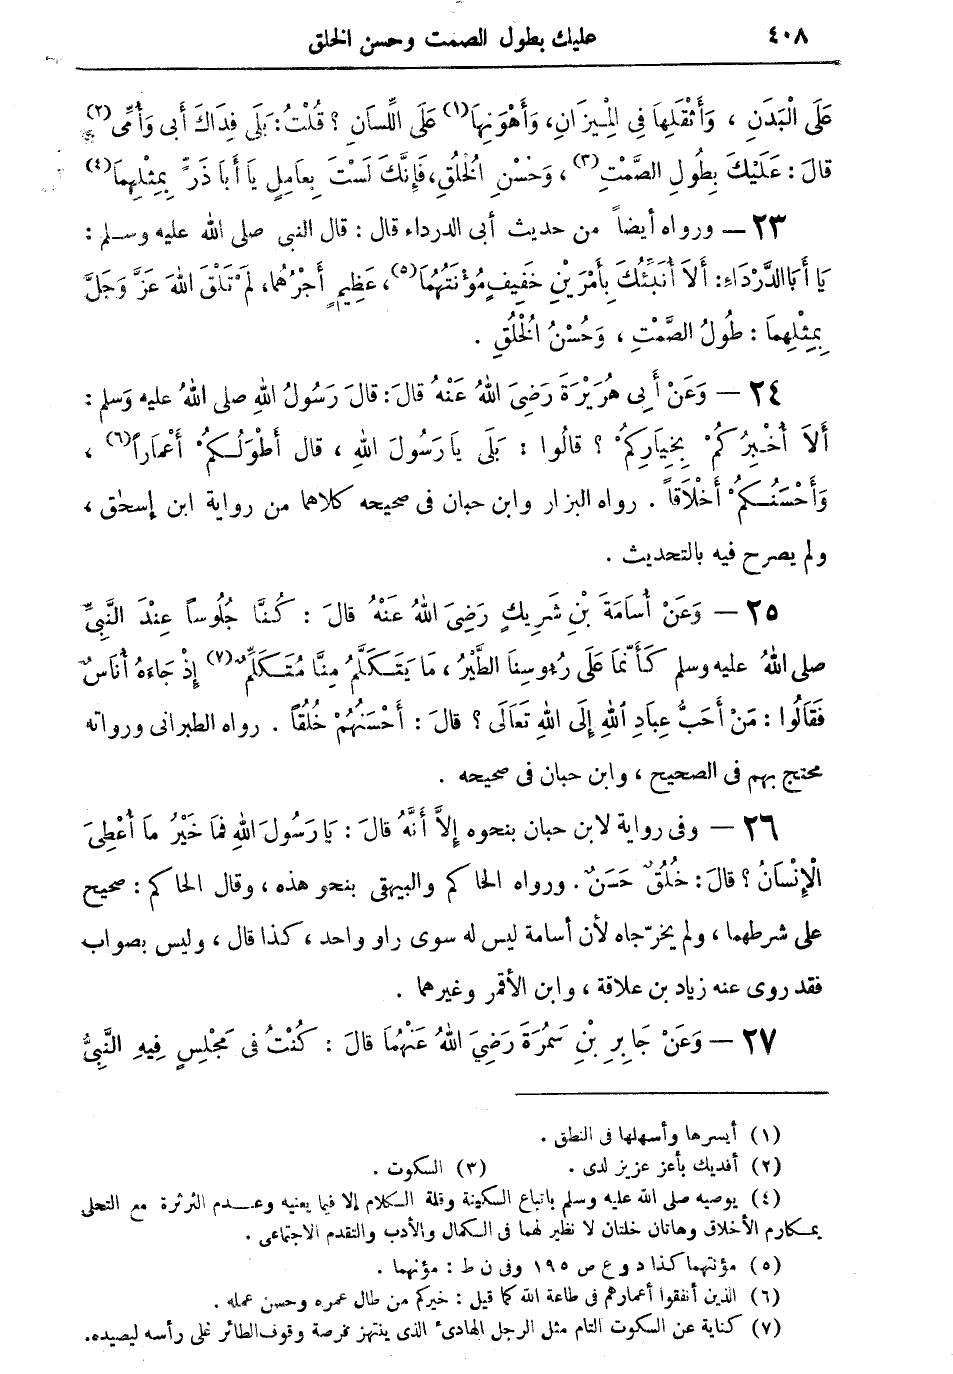 ٤٠٨ عليك بطول الصمت وحسن الخلق
عَلَى الْبَدَنِ ، وَأَثْقَلِهَا فِى الْمِيزَانِ، وَأَهْوَنِهَا(١) عَلَى اللِّسَانِ ؟ قُلْتُ: بَلَى فِدَاكَ أَبى وَأُمِّى(٢)
قالَ: عَلَيْكَ بِطُولِ الصَّمْتِ(٣) ، وَحُسْنِ الْخُلُقِ، فَإِنَّكَ لَسْتَ بِعَامِلٍ يَا أَبَا ذَرٍّ بِمِثْلِهِمَا(٤)
٢٣ – ورواه أيضاً من حديث أبى الدرداء قال: قال النبى صلى الله عليه وسلم :
يَا أَبَا الدَّرْدَاءِ: أَلاَ أُنَبِّئُكَ بِأَمْرَيْنِ خَفِيفٍ مُؤْنَتُهُمَا(٥)، عَظِيمٍ أَجْرُهُمَا، لَمْ تَلْقَ اللهَ عَزَّ وَجَلَّ
بِمِثْلِهِمَا : طُولُ الصَّمْتِ ، وَحُسْنُ الْخُلُقِ .
٢٤ – وَعَنْ أَبِى هُرَيْرَةَ رَضِىَ اللهُ عَنْهُ قالَ: قالَ رَسُولُ اللهِ صلى اللهُ عليه وَسلم :
أَلاَ أُخْبِرُ كُمْ بِخِيَارِكُمْ ؟ قالُوا : بَلَى يَا رَسُولَ اللهِ ، قال أَطْوَلُكُمْ أَعْمَاراً(٦) ،
وَأَحْسَنُكُمْ أَخْلَاقاً . رواه البزار وابن حبان فى صحيحه كلاهما من رواية ابن إسحٰق ،
ولم يصرح فيه بالتحديث .
٢٥ – وَعَنْ أُسَامَةَ بْنِ شَرِيكٍ رَضِىَ اللهُ عَنْهُ قالَ : كُنَّا جُلُوساً عِنْدَ النَّبِىِّ
صلى اللهُ عليه وسلم كَأَنَّمَا عَلَى رُءُوسِنَا الطَّيْرُ، مَا يَتَكَلَّمُ مِنَّا مُتَكَلِّمٌ(٧) إِذْ جَاءَهُ أُنَاسٌ
فَقَالُوا : مَنْ أَحَبُّ عِبَادِ اللهِ إِلَى اللهِ تَعَالَى ؟ قالَ : أَحْسَنُهُمْ خُلُقاً . رواه الطبرانى ورواته
محتج بهم فى الصحيح ، وابن حبان فى صحيحه .
٢٦ – وفى رواية لابن حبان بنحوه إِلاَّ أَنَّهُ قالَ : يَا رَسُولَ اللهِ فَمَا خَيْرُ مَا أُعْطِىَ
الْإِنْسَانُ ؟ قالَ : خُلُقٌ حَسَنٌ . ورواه الحاكم والبيهقى بنحو هذه ، وقال الحاكم : صحيح
على شرطهما ، ولم يخرّجاه لأن أسامة ليس له سوى راو واحد ، كذا قال ، وليس بصواب
فقد روى عنه زياد بن علاقة ، وابن الأقمر وغيرهما .
٢٧ – وَعَنْ جَابِرِ بْنِ سَمُرَةَ رَضِيَ اللهُ عَنْهُمَا قالَ : كُنْتُ فى مَجْلِسٍ فِيهِ النَّبِىُّ
(١) أيسرها وأسهلها فى النطق .
(٢) أفديك بأعز عزيز لدى . (٣) السكوت .
(٤) يوصيه صلى الله عليه وسلم باتباع السكينة وقلة الكلام إلا فيما يعنيه وعدم الثرثرة مع التحلى
بمكارم الأخلاق وهاتان خلتان لا نظير لهما فى الكمال والأدب والتقدم الاجتماعى .
(٥) مؤنتهما كذا د وع ص ١٩٥ وفى ن ط : مؤنهما .
(٦) الذين أنفقوا أعمارهم فى طاعة الله كما قيل : خيركم من طال عمره وحسن عمله .
(٧) كناية عن السكوت التام مثل الرجل الهادئ الذى ينتهز فرصة وقوف الطائر على رأسه ليصيده.